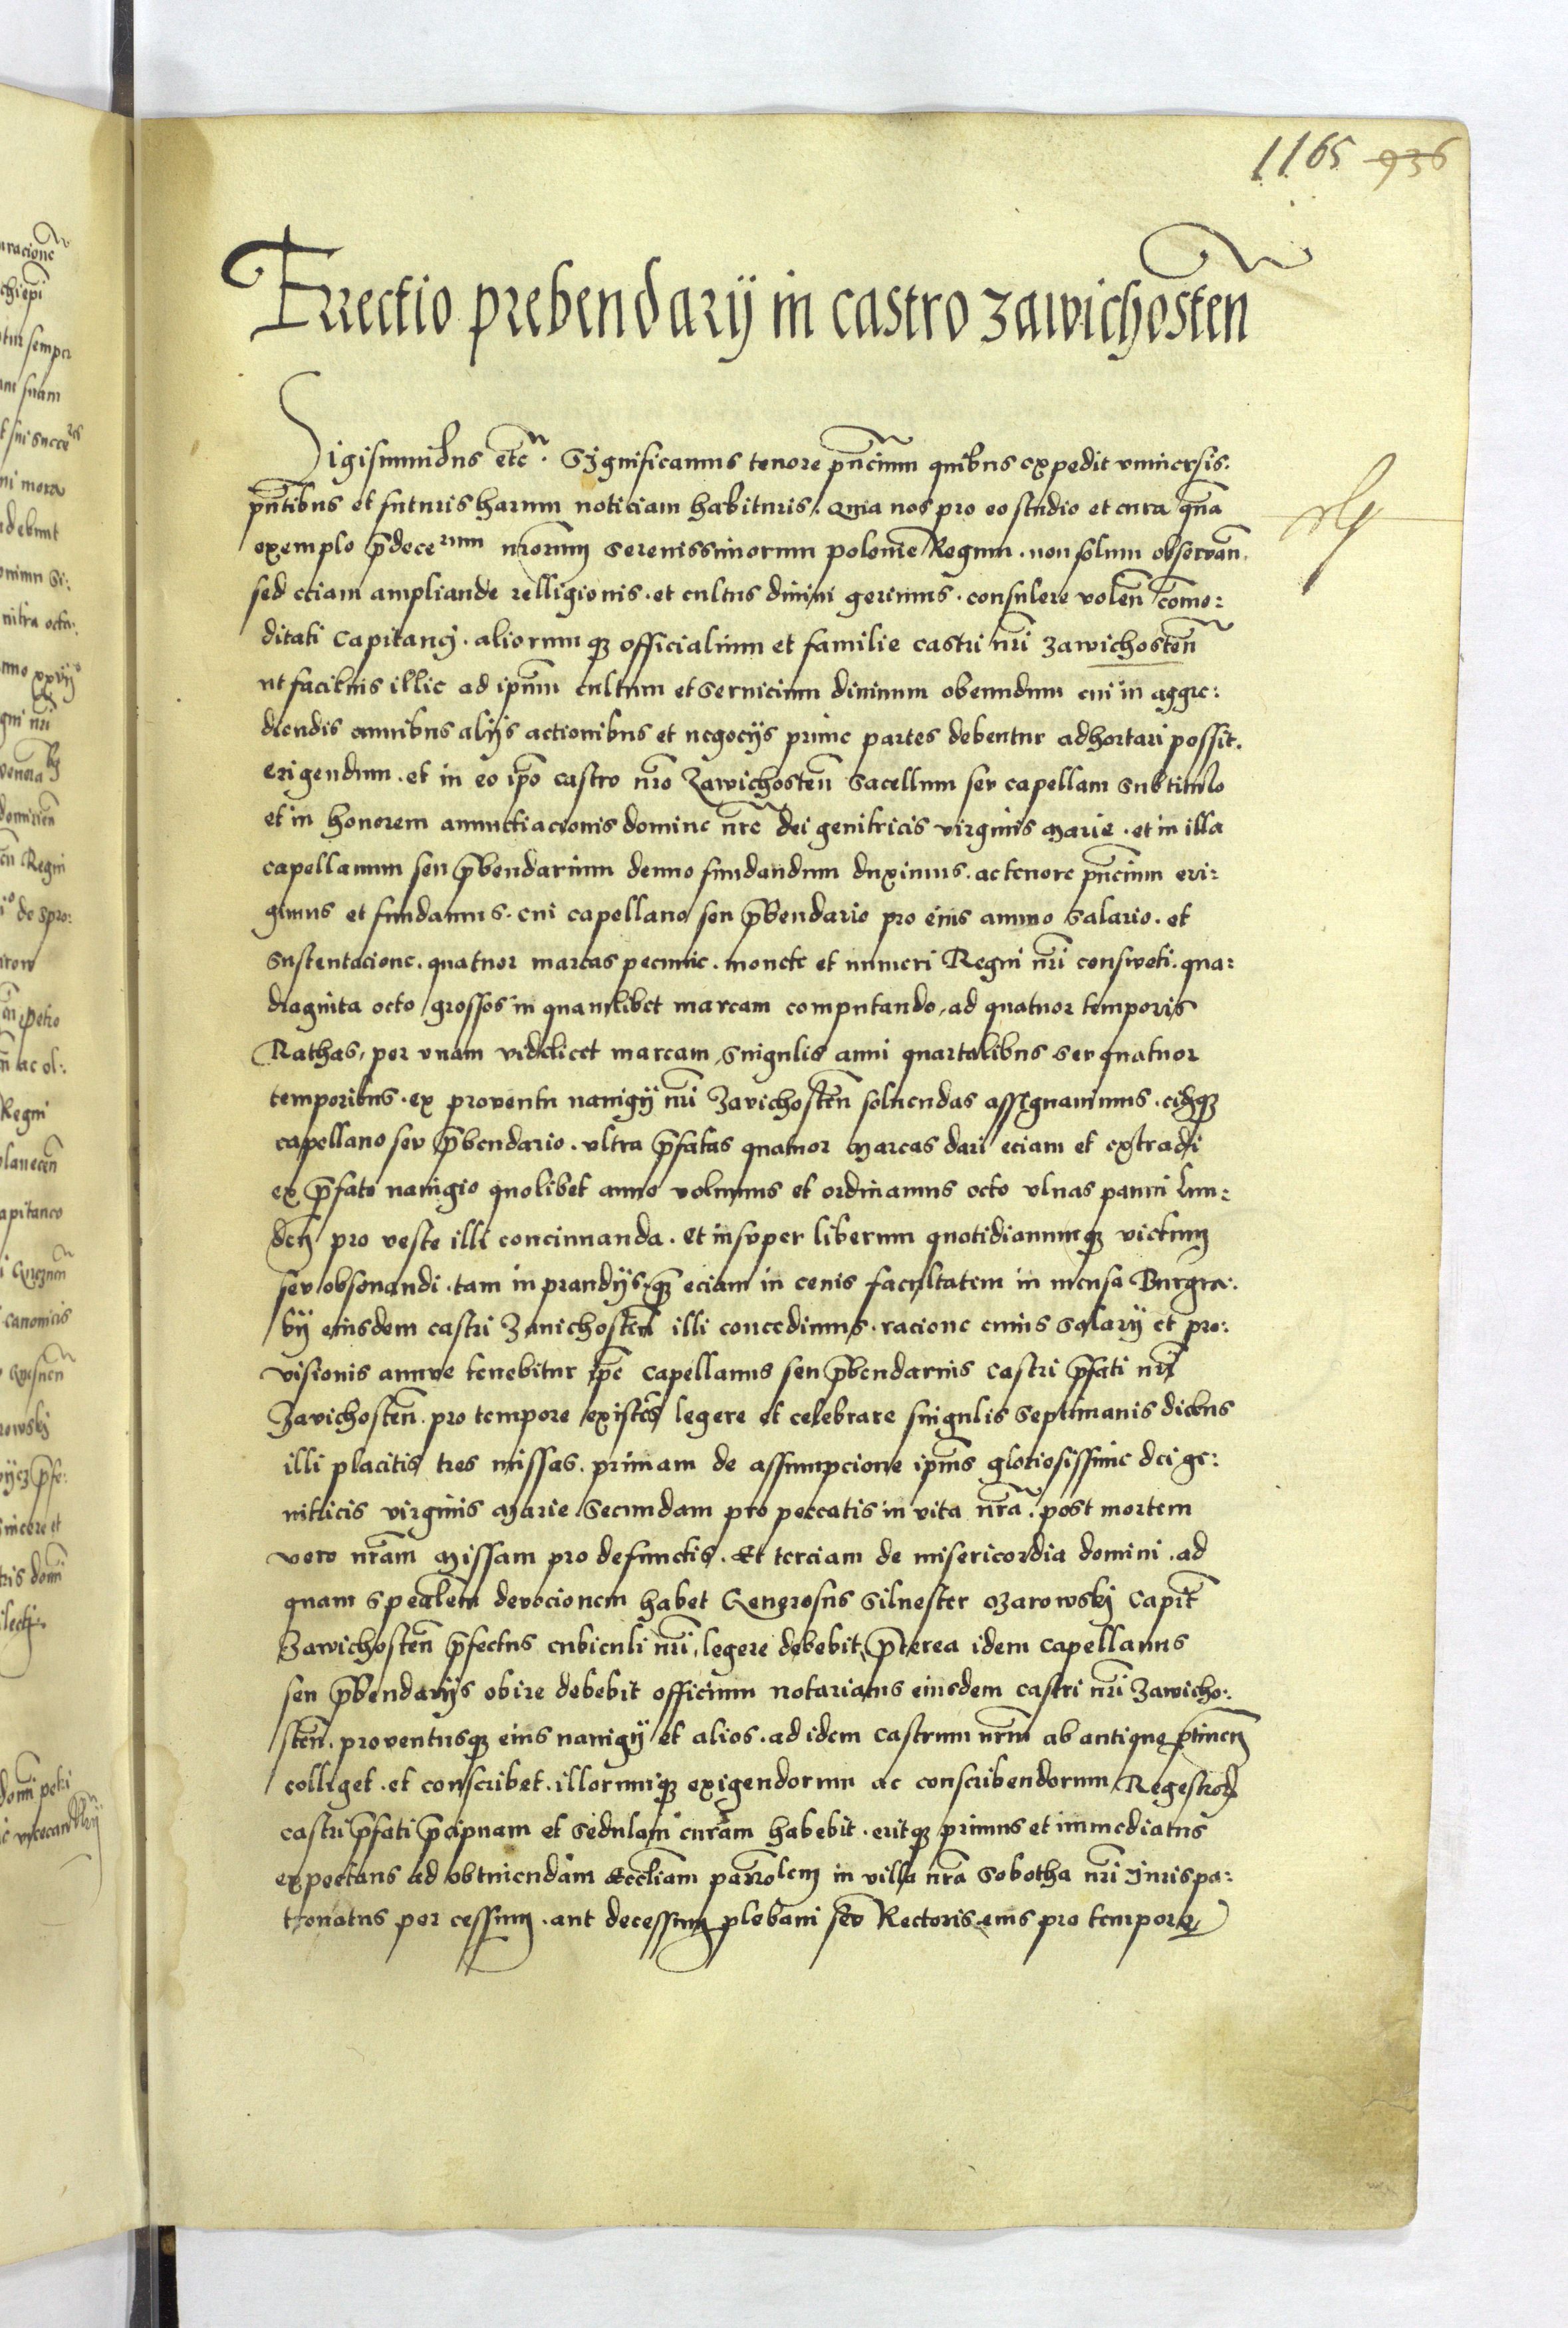 1165 936
Errectio prebendarij in castro zawichosteñ
Sigismundus etc̃. Significamus tenore pñcium quibus expedit vniuersis.
pñtibus et futuris harum noticiam habituris. Quia nos pro eo studio et cura qũa
exemplo p̃dece rum nrorum serenissimorum polonie Regum. non solum obseruañ.
sed etiam ampliande relligionis. et cultus diuini gerimus. consulere voleñ com̃o:
ditati Capitanej. aliorumq officialium et familie castri nr̃i zawichosteñ
ut facilius illic ad ip̃um cultum et seruicium diuinum obeundum cui in aggre:
diendis omnibus alijs actionibus et negocijs prime partes debentur adhortari possit.
erigendum. et in eo ip̃o castro nr̃o Zawichosteñ sacellum seu capellam sub titulo
et in honorem anunctiacionis domine nrẽ dei genitricis virginis marie. et in illa
capellanum seu p̃bendarium denuo fundandum duximus. ac tenore pñcium eri:
gimus et fundamus. cui capellano seu p̃bendario pro eius annuo salario. et
sustentacione. quatuor marcas pecunie. monete et numeri Regni nr̃i consweti. qua:
draginta octo grossos in quamlibet marcam computando, ad quatuor temporis
Rathas, per vnam videlicet marcam, singulis anni quartalibus seu quatuor
temporibus. ex prouentu nauigij nr̃i Zavichosteñ soluendas assignauimus. eidq
capellano seu p̃bendario. vltra p̃fatas quatuor marcas dari eciam et extradi
ex p̃fato nauigio quolibet anno volumus et ordinamus octo vlnas panni Lun:
deñ pro veste illi concinnanda. Et insuper liberum quotidianumq victum
seu obsonandi. tam in prandijs. q̃ eciam in cenis facultatem in mensa Burgra:
bij eiusdem castri Zauichosteñ illi concedimus. racione cuius salarij et pro:
visionis annue tenebitur ip̃e capellanus seu p̃bendarius castri p̃fati nr̃i
Zavichosteñ. pro tempore existẽs legere et celebrare singulis septimanis diebus
illi placitis tres missas. primam de assumpcione ip̃ius gloriosissime dei ge:
nitricis virginis Marie. Secundam pro peccatis in vita nr̃a. post mortem
vero nr̃am Missam pro defunctis. Et terciam de misericordia domini. ad
quam spealem̃ devocionem habet Generosus Siluester Ozarowskj Capit̃
Zawichosteñ p̃fectus cubiculi nr̃i, legere debebit, p̃terea idem capellanus
seu p̃bendarijs obire debebit officium notariatus eiusdem castri nr̃i Zawicho:
steñ. prouentusq eius nauigij et alios. ad idem castrum nr̃m ab antiquo p̃tineñ
colliget. et conscribet. illorumq exigendorum ac conscribendorum Regestrorũ
castri p̃fati p̃cipuam et sedulam curam habebit. eritq primus et immediatus
expectans ad obtinendam Eccl̃iam parrolem in villa nr̃a Sobotha nr̃i Jurispa:
tronatus per cessum. aut decessum plebani seu Rectoris eius pro tempore